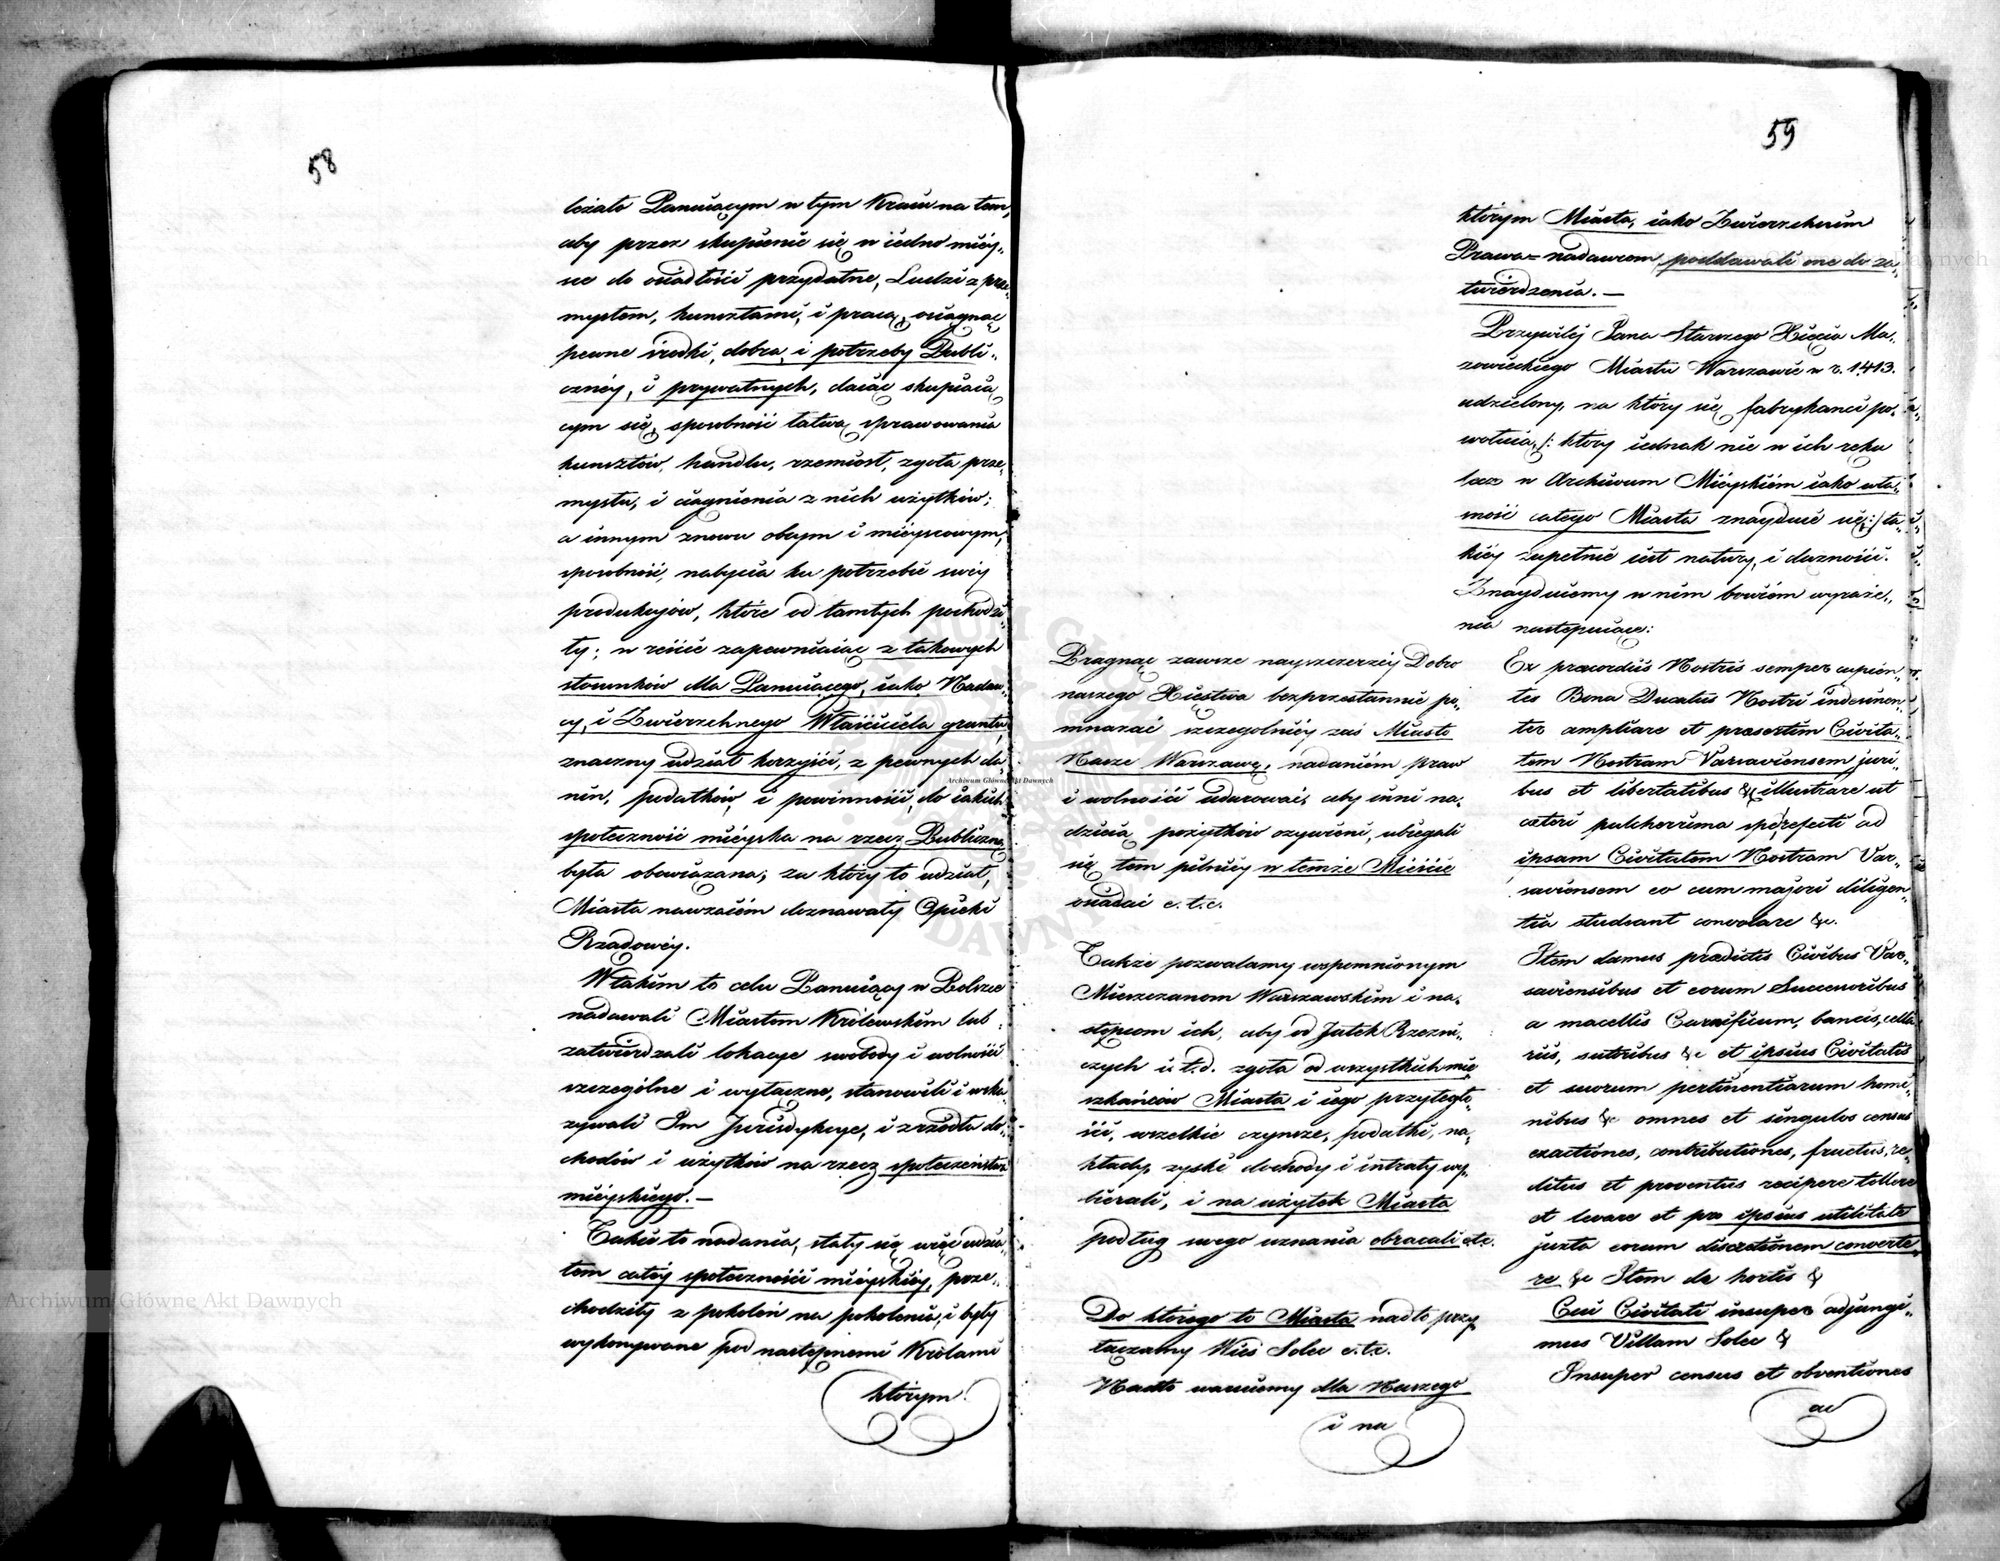 58
leżało Panuiącym w tym Kraiu na tem,
aby przez skupienie się w iedno miéy„
sce do osiadłości przydatne, Ludzi z prze„
mysłem, kunsztami, i pracą, osiągnąć
pewne środki, dobra, i potrzeby Publi„
cznéy, i prywatnych, daiąc skupiaią
cym się, sposobność łatwą sprawowania
kunsztów, handlu, rzemiosł, zgoła prze„
mysłu, i ciągnienia z nich użytków;
a innym znowu obcym i miéyscowym,
sposobność, nabycia ku potrzebie swéy
produkcyów, które od tamtych pochodzi
ły; w reście zapewniaiąc z takowych
stosunków dla Panuiącego, iako Nadaw„
cy, i Zwierzchnego Właściciela gruntu,
znaczny udział korzyści, z pewnych da„
nin, podatków i powinności, do iakich
społeczność miéyska na rzecz Publiczną
była obowiązana; za który to udział,
Miasta nawzaiém doznawały Opieki
Rządowéy.
W takim to celu Panuiący w Polszcze
nadawali Miastom Królewskim lub
zatwierdzali lokacye swobody i wolności
szczególne i wyłączne, stanowili i wska„
zywali Im Jurisdykcye, i zrzódła do„
chodów i użytków na rzecz społeczeństwa
miéyskiego. —
Takie to nadania, stały się więc udzia„
łem całéy społeczności miéyskiéy, prze„
chodziły z pokoleń na pokolenia, i były
wykonywane pod następnemi Królami
którym
59
którym Miasta, iako Zwierzchnim
Prawo= nadawcom poddawali one do za„
twierdzenia. —
Przywiléy Jana Starszego Xięcia Ma„
zowieckiego Miastu Warszawie w r. 1413.
udzielony, na który się fabrykanci po„
wołuią, /: który iednak nie w ich ręku
lecz w Archiwum Miéyskiém iako wła„
sność całego Miasta znayduie się :/ ta„
kiéy zupełnie iest natury, i dążności.
Znayduiemy w nim bowiém wyraże„
nia następuiące:
Pragnąc zawsze nayszczerzéy Dobro
naszego Xięstwa bezprzestannie po„
mnażać szczególniéy zaś Miasto
Nasze Warszawę, nadaniém praw
i wolności udarować, aby inni na„
dzieią pożytków ożywieni, ubiegali
się tem pilniéy w temże Mieście
osiadać e. t. c.
Także pozwalamy wspomnionym
Mieszczanom Warszawskim i na„
stępcom ich, aby od Jatek Rzezni„
czych i t. d. zgoła od wszystkich mie
szkańców Miasta i iego przyległo„
ści, wszelkie czynsze, podatki, na„
kłady, zyski dochody i intraty wy„
bierali, i na użytek Miasta
podług swego uznania obracali etc.
Do którego to Miasta nadto przy
łączamy Wieś Solec e. tc.
Nadto waruiemy dla Naszego
i na
Ex præcordiis Nostris semper cupien„
tes Bona Ducatus Nostri indesinen„
ter ampliare et præsertim Civita„
tem Nostram Varsaviensem juri„
bus et libertatibus & illustrare ut
cæteri pulcherrima spe refecti ad
ipsam Civitatem Nostram Var„
saviensem eo cum majori diligen„
tia studeant convolare &c.
Item damus prædictis Civibus Var„
saviensibus et eorum Successoribus
a macellis Carnificum, bancis, cella
riis, sutribus &c et ipsius Civitatis
et suorum pertinentiarum homi„
nibus &c omnes et singulos census
exactiones, contributiones, fructus, re„
ditus et proventus recipere tollere
et levare et pro ipsius utilitate
juxta eorum discretionem converte„
re &c Item de hortis &
Cui Civitati insuper adjungi„
mus Villam Solec &
Insuper census et obventiones
ac
Archiwum Główne Akt Dawnych
Archiwum Główne Akt Dawnych